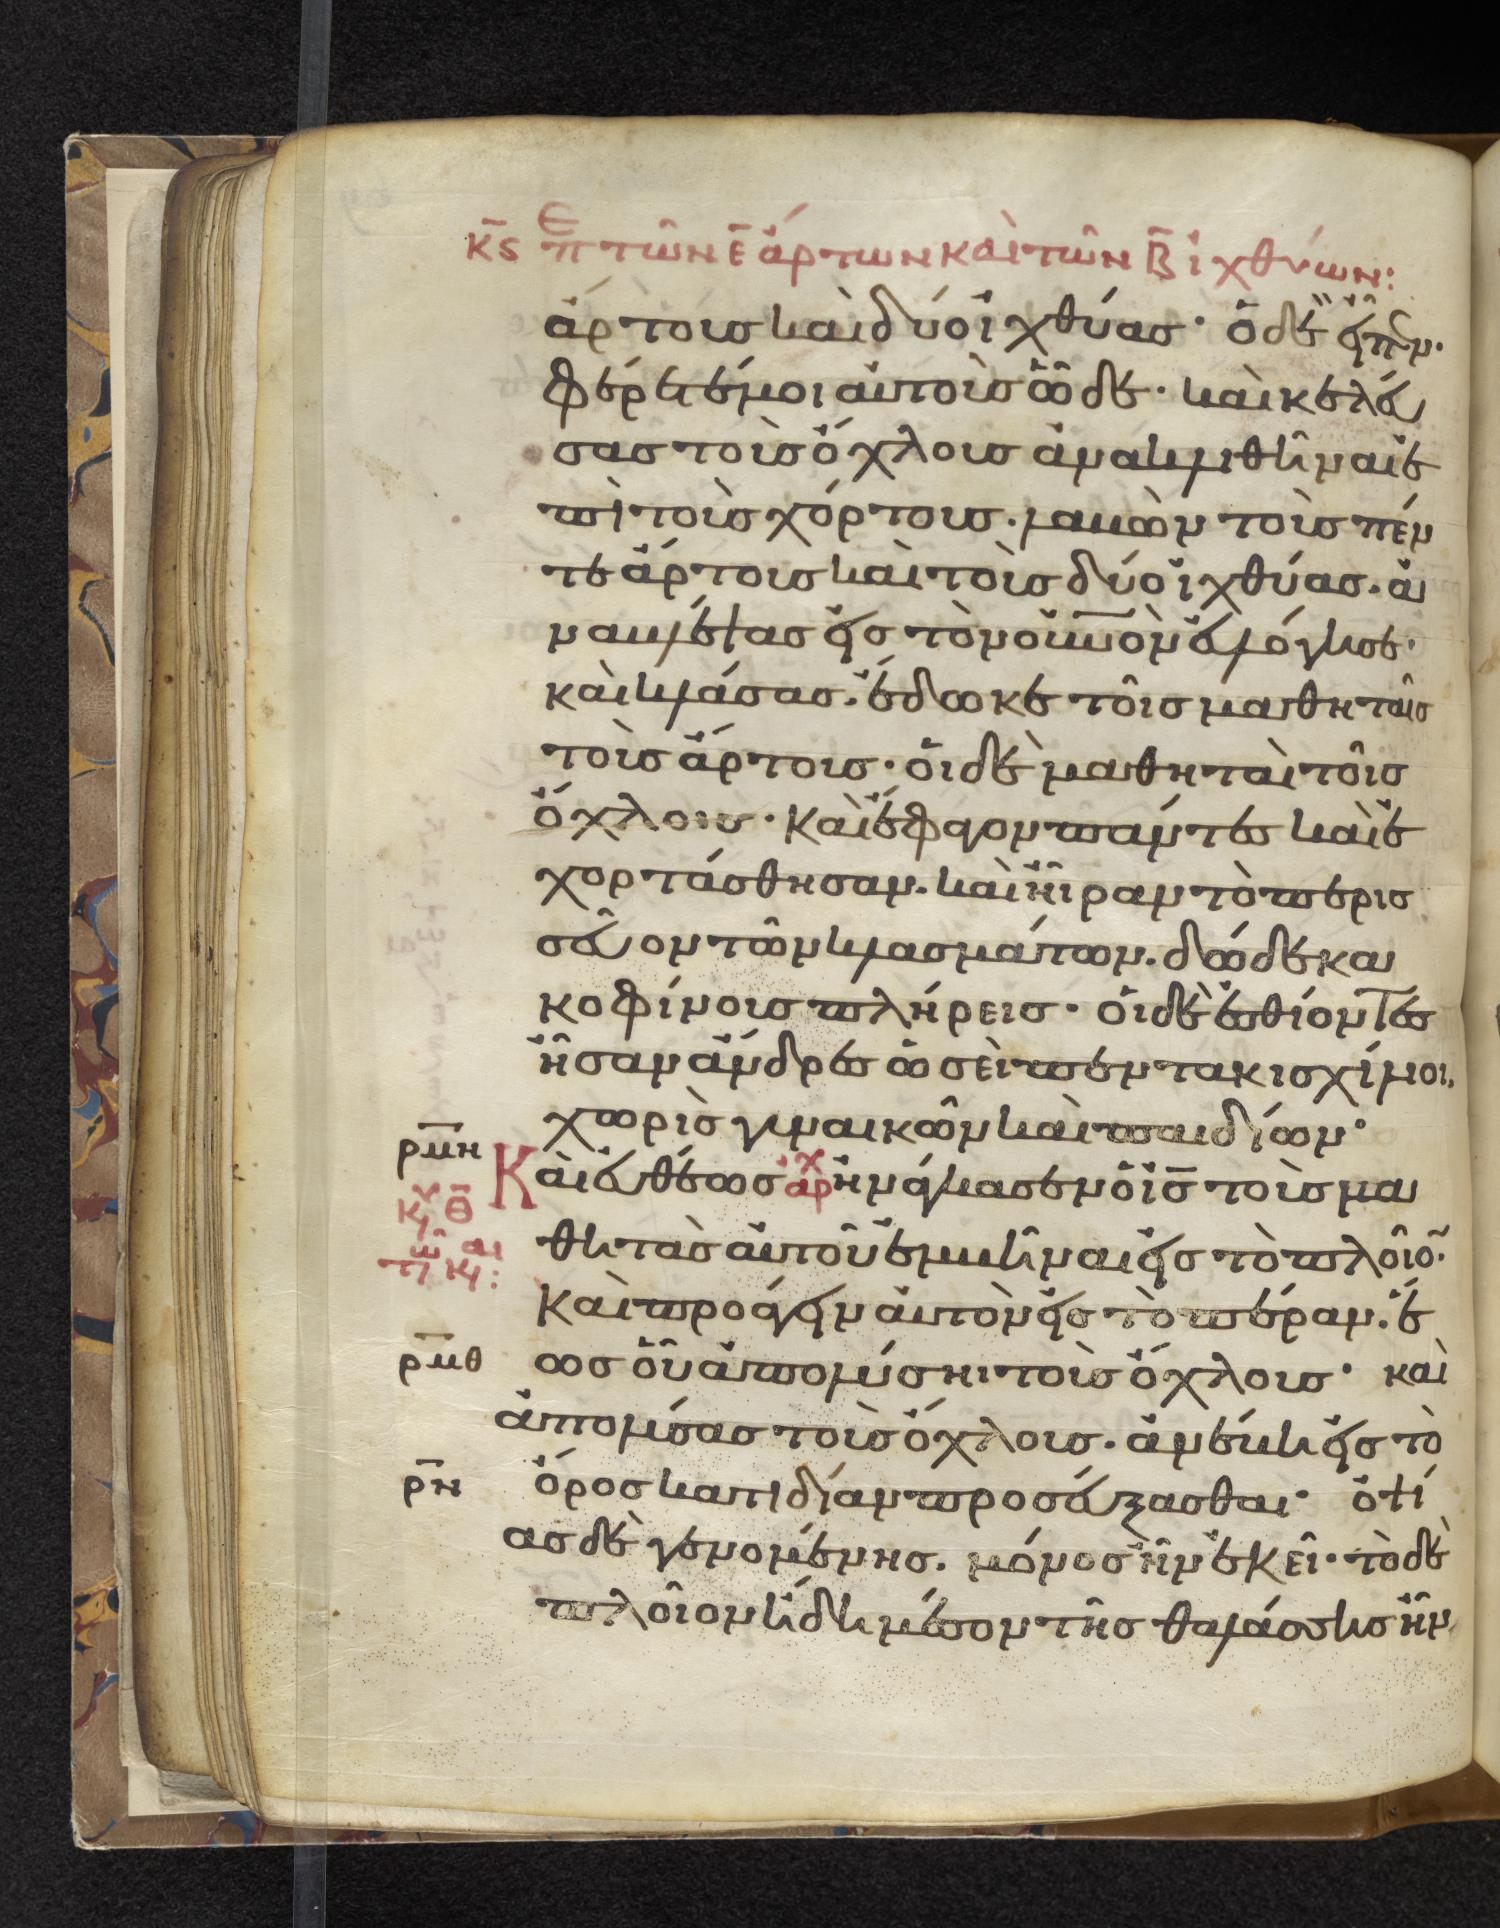 κ̅ς Ἐπ τῶν ε̅ ἄρτων καὶ τῶν β̅ ἰχθύων:
ἄρτους καὶ δύο ἰχθύας· ὁ δὲ εἶπεν·
φέρετέ μοι αὐτοὺς ὧδε· καὶ κελεύ
σας τοὺς ὄχλους ἀνακλιθῆναι ἐ
πὶ τοὺς χόρτους· λαβὼν τοὺς πέν
τε ἄρτους καὶ τοὺς δύο ἰχθύας· ἀ
ναβλέψας εἰς τὸν οὐ̅ν̅ὸν εὐλόγησε·
καὶ κλάσας· ἔδωκε τοῖς μαθηταῖς
τοὺς ἄρτους· οἱ δὲ μαθηταὶ τοῖς
ὄχλοις· Καὶ ἔφαγον πάντες καὶ ἐ
χορτάσθησαν· καὶ ἦραν τὸ περισ
σεῦον τῶν κλασμάτων· δώδεκα
κοφίνους πλήρεις· οἱ δὲ ἐσθίοντες
ἦσαν ἄνδρες ὡσεὶ πεντακισχίλιοι,
χωρὶς γυναικῶν καὶ παιδίων·
ρ̅μ̅η Καὶ εὐθέως ἀρχ ἠνάγκασεν ὁ ἰ̅ς̅ τοὺς μα
θητὰς αὐτοῦ ἐμβῆναι εἰς τὸ πλοῖο̅·
Καὶ προάγειν αὐτὸν εἰς τὸ πέραν· ἕ
ρ̅μ̅θ ως οὗ ἀπολύσηι τοὺς ὄχλους· καὶ
ἀπολύσας τοὺς ὄχλους· ἀνέβη εἰς τὸ
ρ̅ν ὄρος κατιδίαν προσεύξασθαι· ὀψί
ας δὲ γενομένης· μόνος ἦν ἐκεῖ· τὸ δὲ
πλοῖον ἤδη μέσον τῆς θαλάσσης ἦν